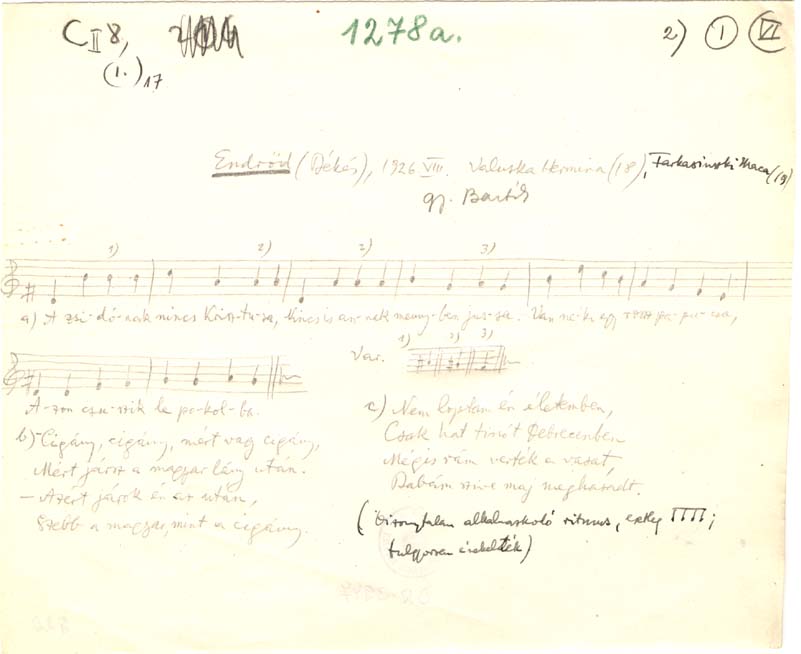 C II 8, 1278a. 2) I VI
(1.) 17
Endrőd (Békés), 1926 VIII. Valuska Hermina (18), Farkasinszki Maca (19)
gy. Bartók
1) 2) 2) 3)
a) A zsi-dó-nak nincs Krisz-tu-sa, Nincs is an-nek meny-ben jus-sa. Van ne-ki egy rossz pa-pu-csa,
Var. 1) 2) 3)
A-zon csu-szik le po-kol-ba.
b) Cigány, cigány, mért vagy cigány,
Mért jársz a magyar lány után.
– Azért járok én az után,
Szebb a magyar, mint a cigány.
c) Nem loptam én életemben,
Csak hat tinót Debrecenben
Mégis rám verték a vasat,
Babám szíve maj meghasadt.
(Bizonytalan alkalmazkodó ritmus,
túlgyorsan énekelték)